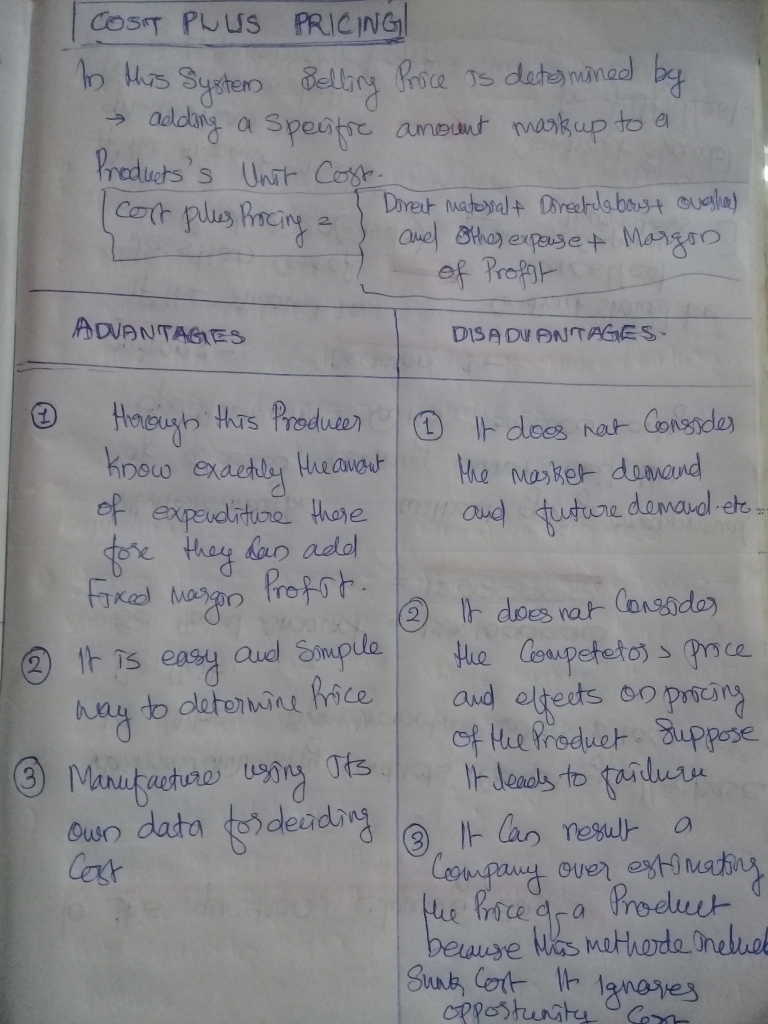 COST PLUS PRICING
In this System Selling Price is determined by
→ adding a Specific amount markup to a
Products's Unit Cost.
Cost plus Pricing =
Direct material + Direct labour + overhead
and other expense + Margon
of Profit
ADVANTAGES
① through this Producer
know exactly the amout
of expenditure there
fore they can add
Fixed margon Profit.
② It is easy and Simple
way to determine Price
③ Manufacture using Its
own data for deciding
Cost
DISADVANTAGES.
① It does not Consider
the market demand
and future demand.etc
② It does not Consider
the Competetors price
and effects on pricing
of the Product. Suppose
It leads to failure
③ It Can result a
Company over estimating
the Price of a Product
because this methode Includ
Sunk Cost It ignores
opportunity Cost